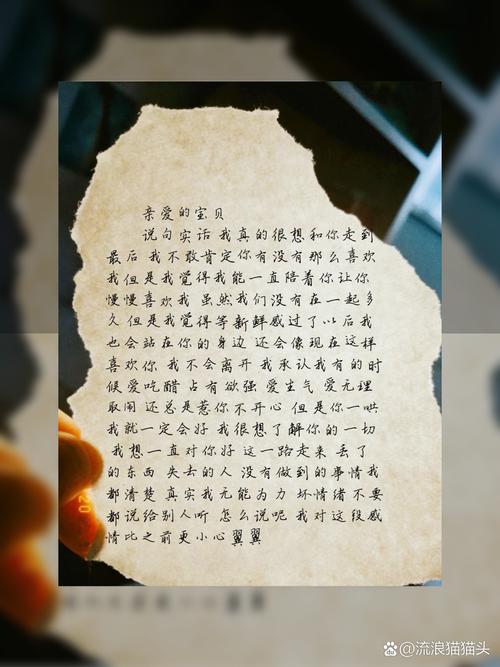 亲爱的宝贝
说句实话 我真的很想和你走到
最后 我不敢肯定你有没有那么喜欢
我但是我觉得我能一直陪着你让你
慢慢喜欢我 虽然我们没有在一起多
久 但是我觉得等新鲜感过了以后我
也会站在你的身边 还会像现在这样
喜欢你 我不会离开 我承认我有的时
候 爱吃醋 占有欲强 爱生气 爱无理
取闹 还总是惹你不开心 但是你一哄
我就一定会好 我很想了解你的一切
我想一直对你好 这一路走来 丢了
的东西 失去的人 没有做到的事情我
都清楚 真实我无能为力 坏情绪不要
都说给别人听 怎么说呢 我对这段感
情比之前更小心翼翼
@流浪猫猫头